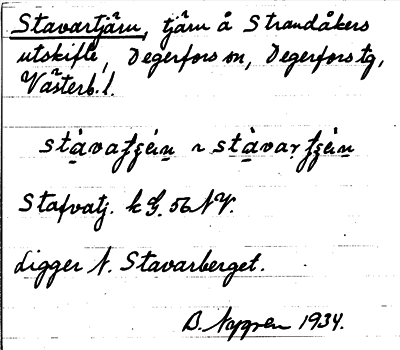 Stavartjärn, tjärn å Strandåkers
utskifte, Degerfors sn, Degerfors tg,
Västerb. l.
stàvaʃʒéin ~ stàvarʃʒéin
Stafvatj. k G. 56 NV.
Ligger N. Stavarberget.
B. Nygren 1934.